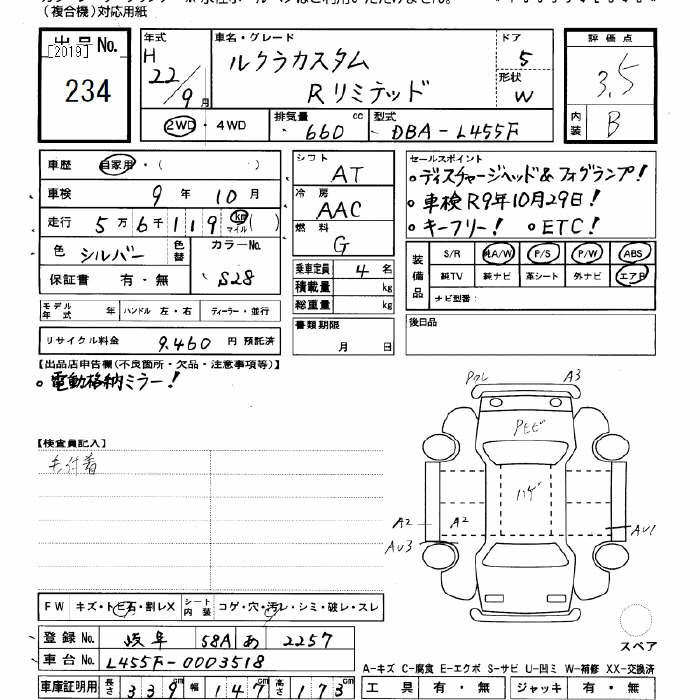 (複合機)対応用紙
出品No.
[2019]
234
年式 車名・グレード ドア 評価点
H 22/9月 ルクラカスタム 5 3.5
Rリミテッド 形状 W
2WD・4WD 排気量 660 cc 型式 DBA-L455F 内装 B
車歴 自家用・( )
車検 9年10月
走行 5万6千119 km マイル( )
色 シルバー 色替 カラーNo. S28
保証書 有・無
モデル年式 年 ハンドル 左・右 ディーラー・並行
リサイクル料金 9,460 円 預託済
シフト AT
冷房 AAC
燃料 G
乗車定員 4 名
積載量 kg
総重量 kg
書類期限
月 日
セールスポイント
。ディスチャージヘッド&フォグランプ!
。車検R9年10月29日!
。キーフリー! 。ETC!
装備品 S/R 純A/W P/S P/W ABS
純TV 純ナビ 革シート 外ナビ エアB
ナビ型番:
後日品
【出品店申告欄(不良箇所・欠品・注意事項等)】
。電動格納ミラー!
【検査員記入】
毛付着
PカレA3
Pヒビ
ハゲ
A2 A2 AU1
AU3
スペア
FW キズ・トビ石・割レX シート内装 コゲ・穴・汚レ・シミ・破レ・スレ
登録No. 岐阜 58A あ 2257
車台No. L455F-0003518
車庫証明用 長さ 339cm 幅 147cm 高さ 173cm
A-キズ C-腐食 E-エクボ S-サビ U-凹ミ W-補修 XX-交換済
工具 有・無 ジャッキ 有・無